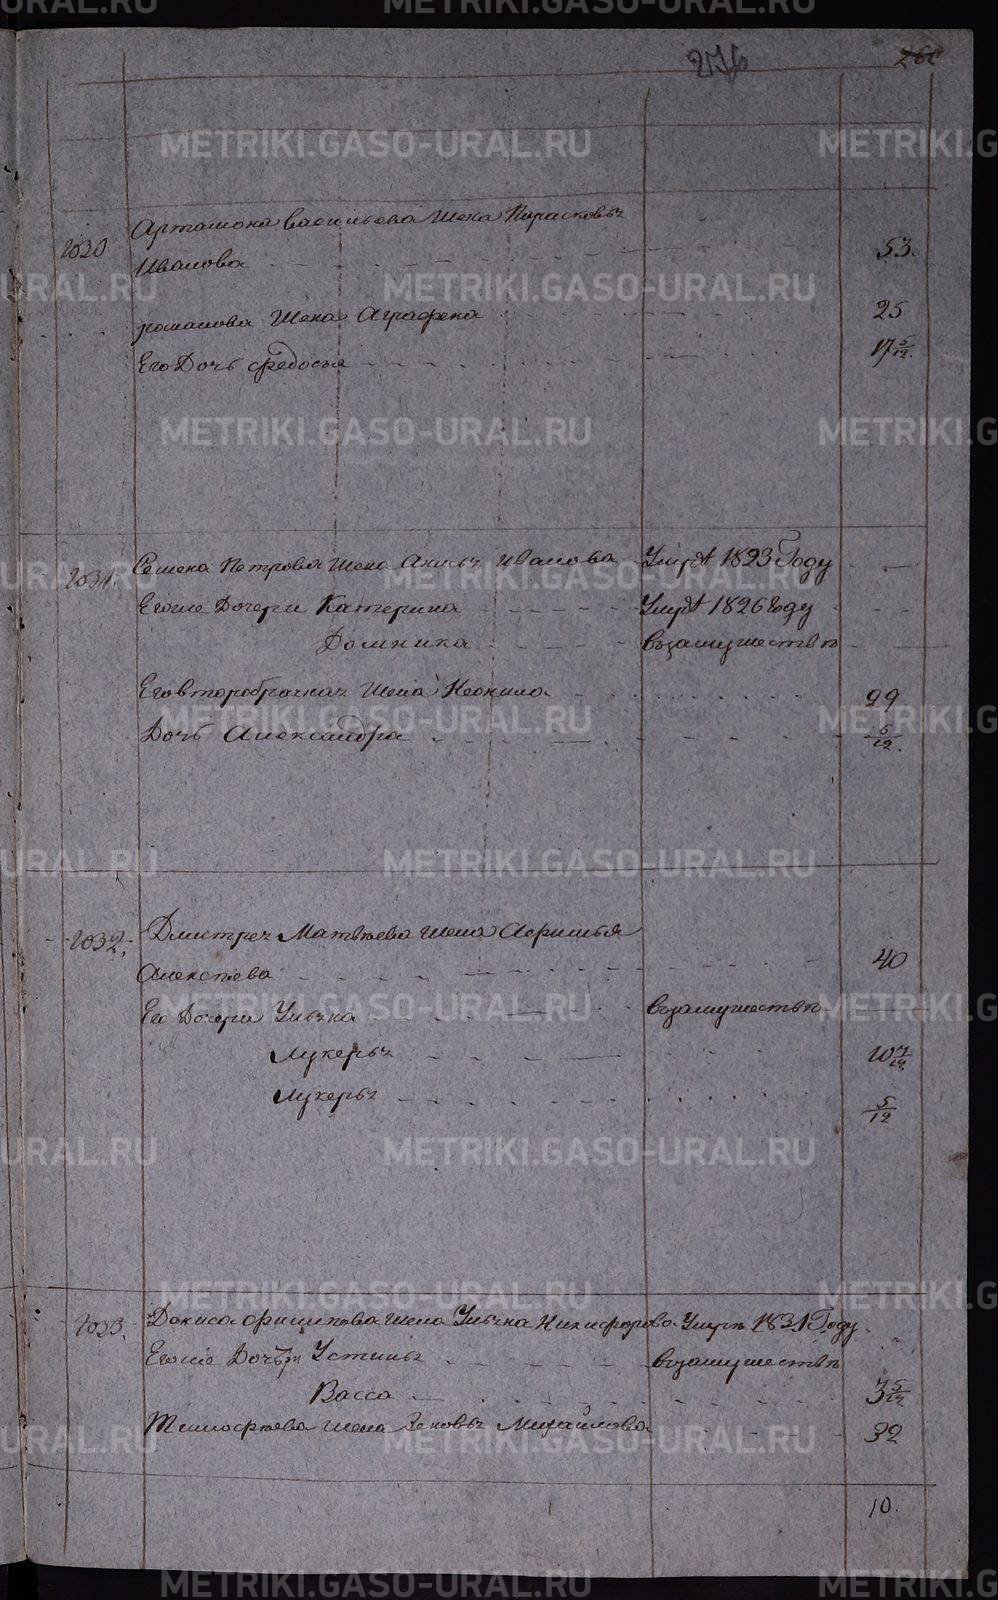 276
260
1030
Арташона Васильева жена Парасковья
Иванова 53.
романова жена Аграфена 25
Его Дочь федосья 17 5/12.
1031.
Семена Петрова жена Анисья Иванова Умре 1823 Году
Егоже Дочери Катерина Умре 1826 Году
Домника взамужестве
Его второбрачная жена Неонила 29.
Дочь Александра 5/12.
1032.
Дмитрея Матвеева жена Афимья
Алексеева 40
Его Дочери Ульяна взамужестве
Лукерья 10 7/12
Лукерья 5/12
1033.
Дениса филипова жена Ульяна Никифорова Умре 1831 Году.
Егоже Дочери Устинья взамужестве
Васса 3 5/12
Тимофеева жена Зеновья Михайлова 32
10.
METRIKI.GASO-URAL.RU